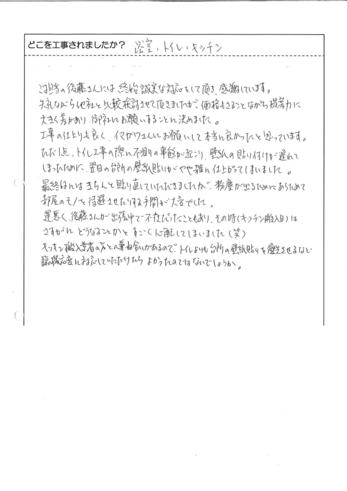 どこを工事されましたか？ 浴室・トイレ・キッチン
ご担当の後藤さんには終始誠実な対応をして頂き、感謝しています。
失礼ながら他社と比較検討させて頂きましたが、価格もさることながら提案力に
大きく差があり、御社にお願いすることに決めました。
工事の仕上りも良く、イマガワさんにお願いして本当に良かったと思っています。
ただ1点、トイレ工事の際に不測の事態が起こり、壁紙の貼り付けが遅れて
しまったために、翌日の台所の壁紙貼りがやや雑に仕上がってしまいました。
最終的にはきちんと貼り直していただきましたが、粉塵が出るためにあらためて
部屋のモノを待避させたりする手間が大変でした。
運悪く、後藤さんが出張中で不在だったこともあり、その時(キッチン搬入日)は
さすがに どうなることかと すごく心配してしまいました(笑)
キッチン搬入業者の方との兼ね合いがあるので、トイレよりも台所の壁紙貼りを優先させるなど
臨機応変に対応していただけたら よかったのではないでしょうか。